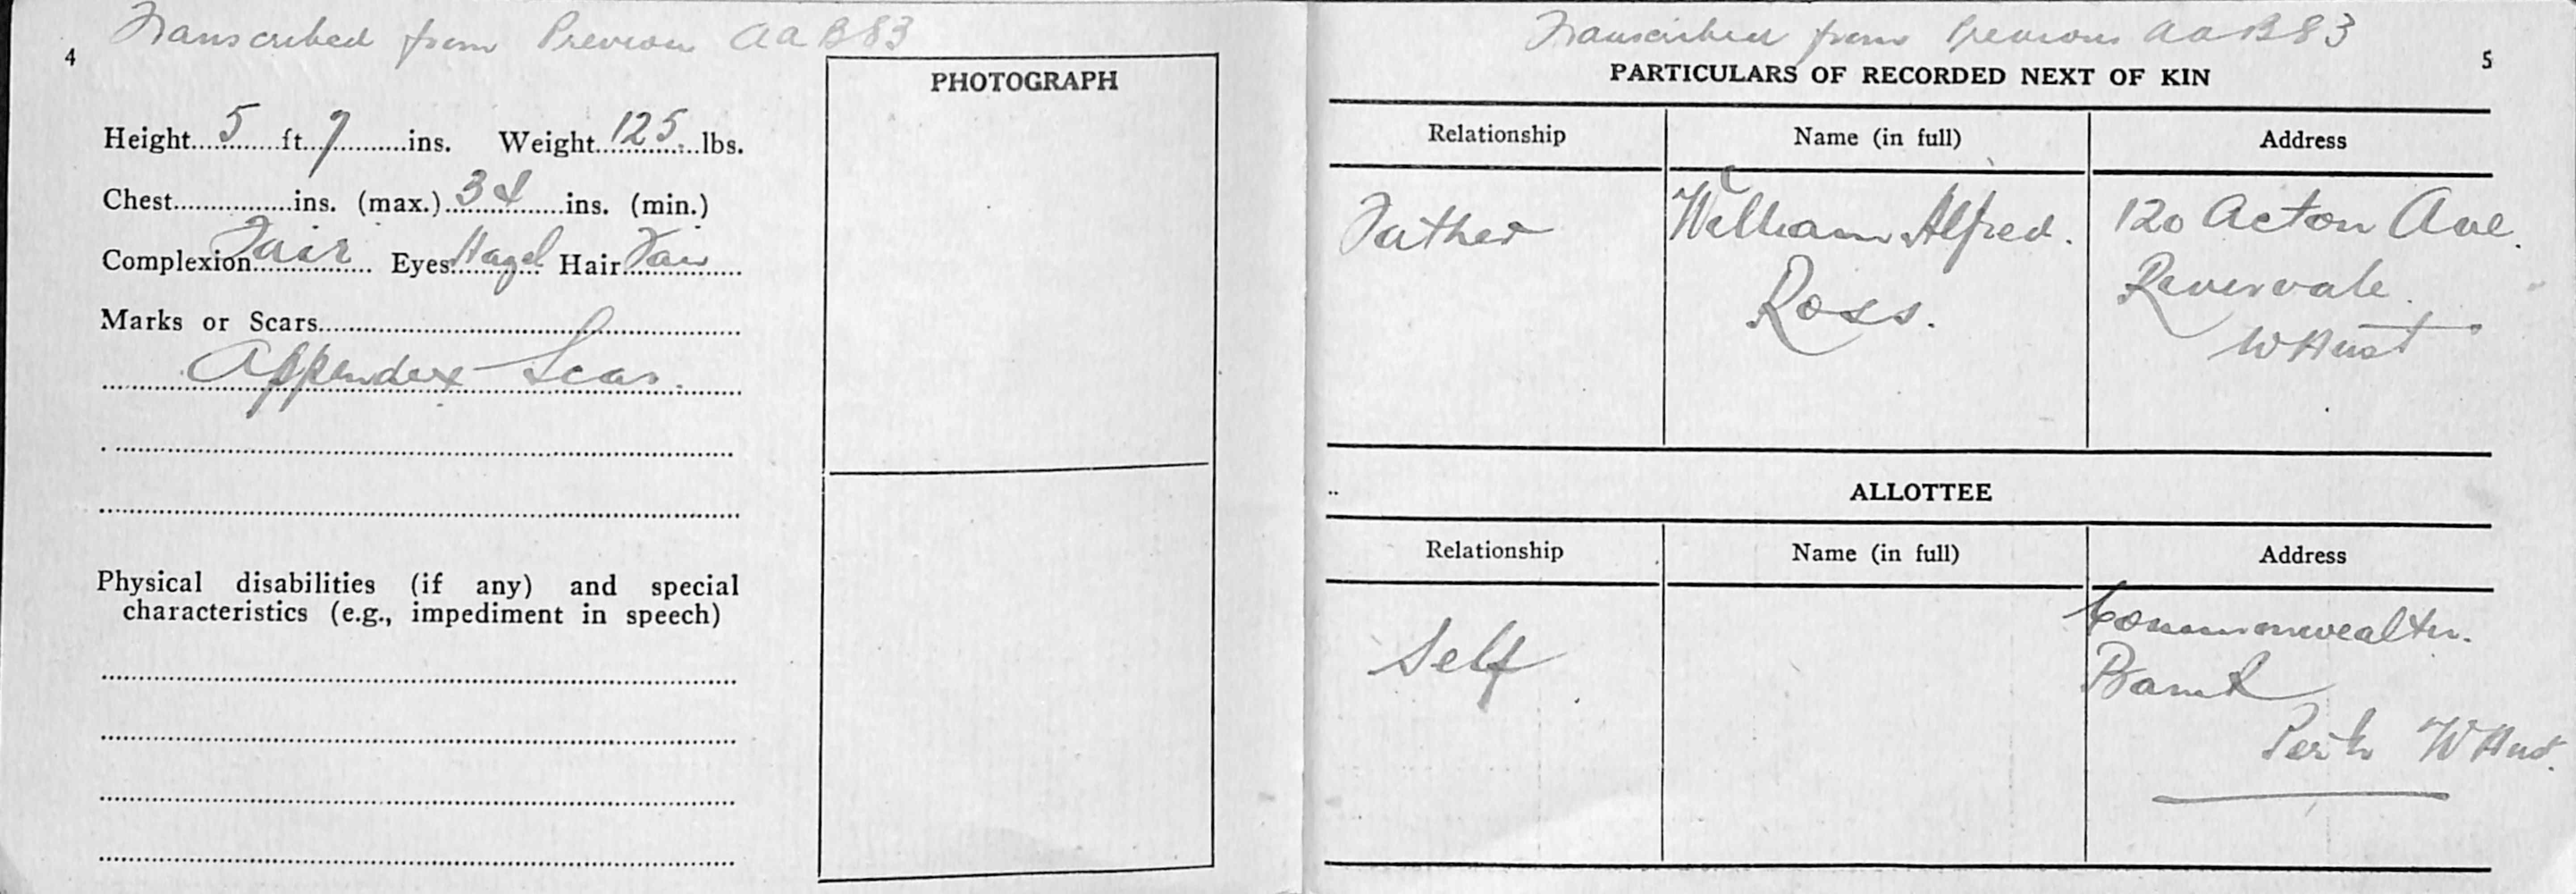 Transcribed from Previous AAB83
4
Height 5 ft 7 ins. Weight 125 lbs.
Chest ins. (max.) 34 ins. (min.)
Complexion Fair Eyes Hazel Hair Fair
Marks or Scars
Appendex Scar.
Physical disabilities (if any) and special
characteristics (e.g., impediment in speech)
PHOTOGRAPH
Transcribed from Previous AAB83
5
PARTICULARS OF RECORDED NEXT OF KIN
Relationship Name (in full) Address
Father William Alfred. 120 Acton Ave.
Ross. Rivervale.
W Aust
ALLOTTEE
Relationship Name (in full) Address
Commonwealth.
Self Bank
Perth W Aust.